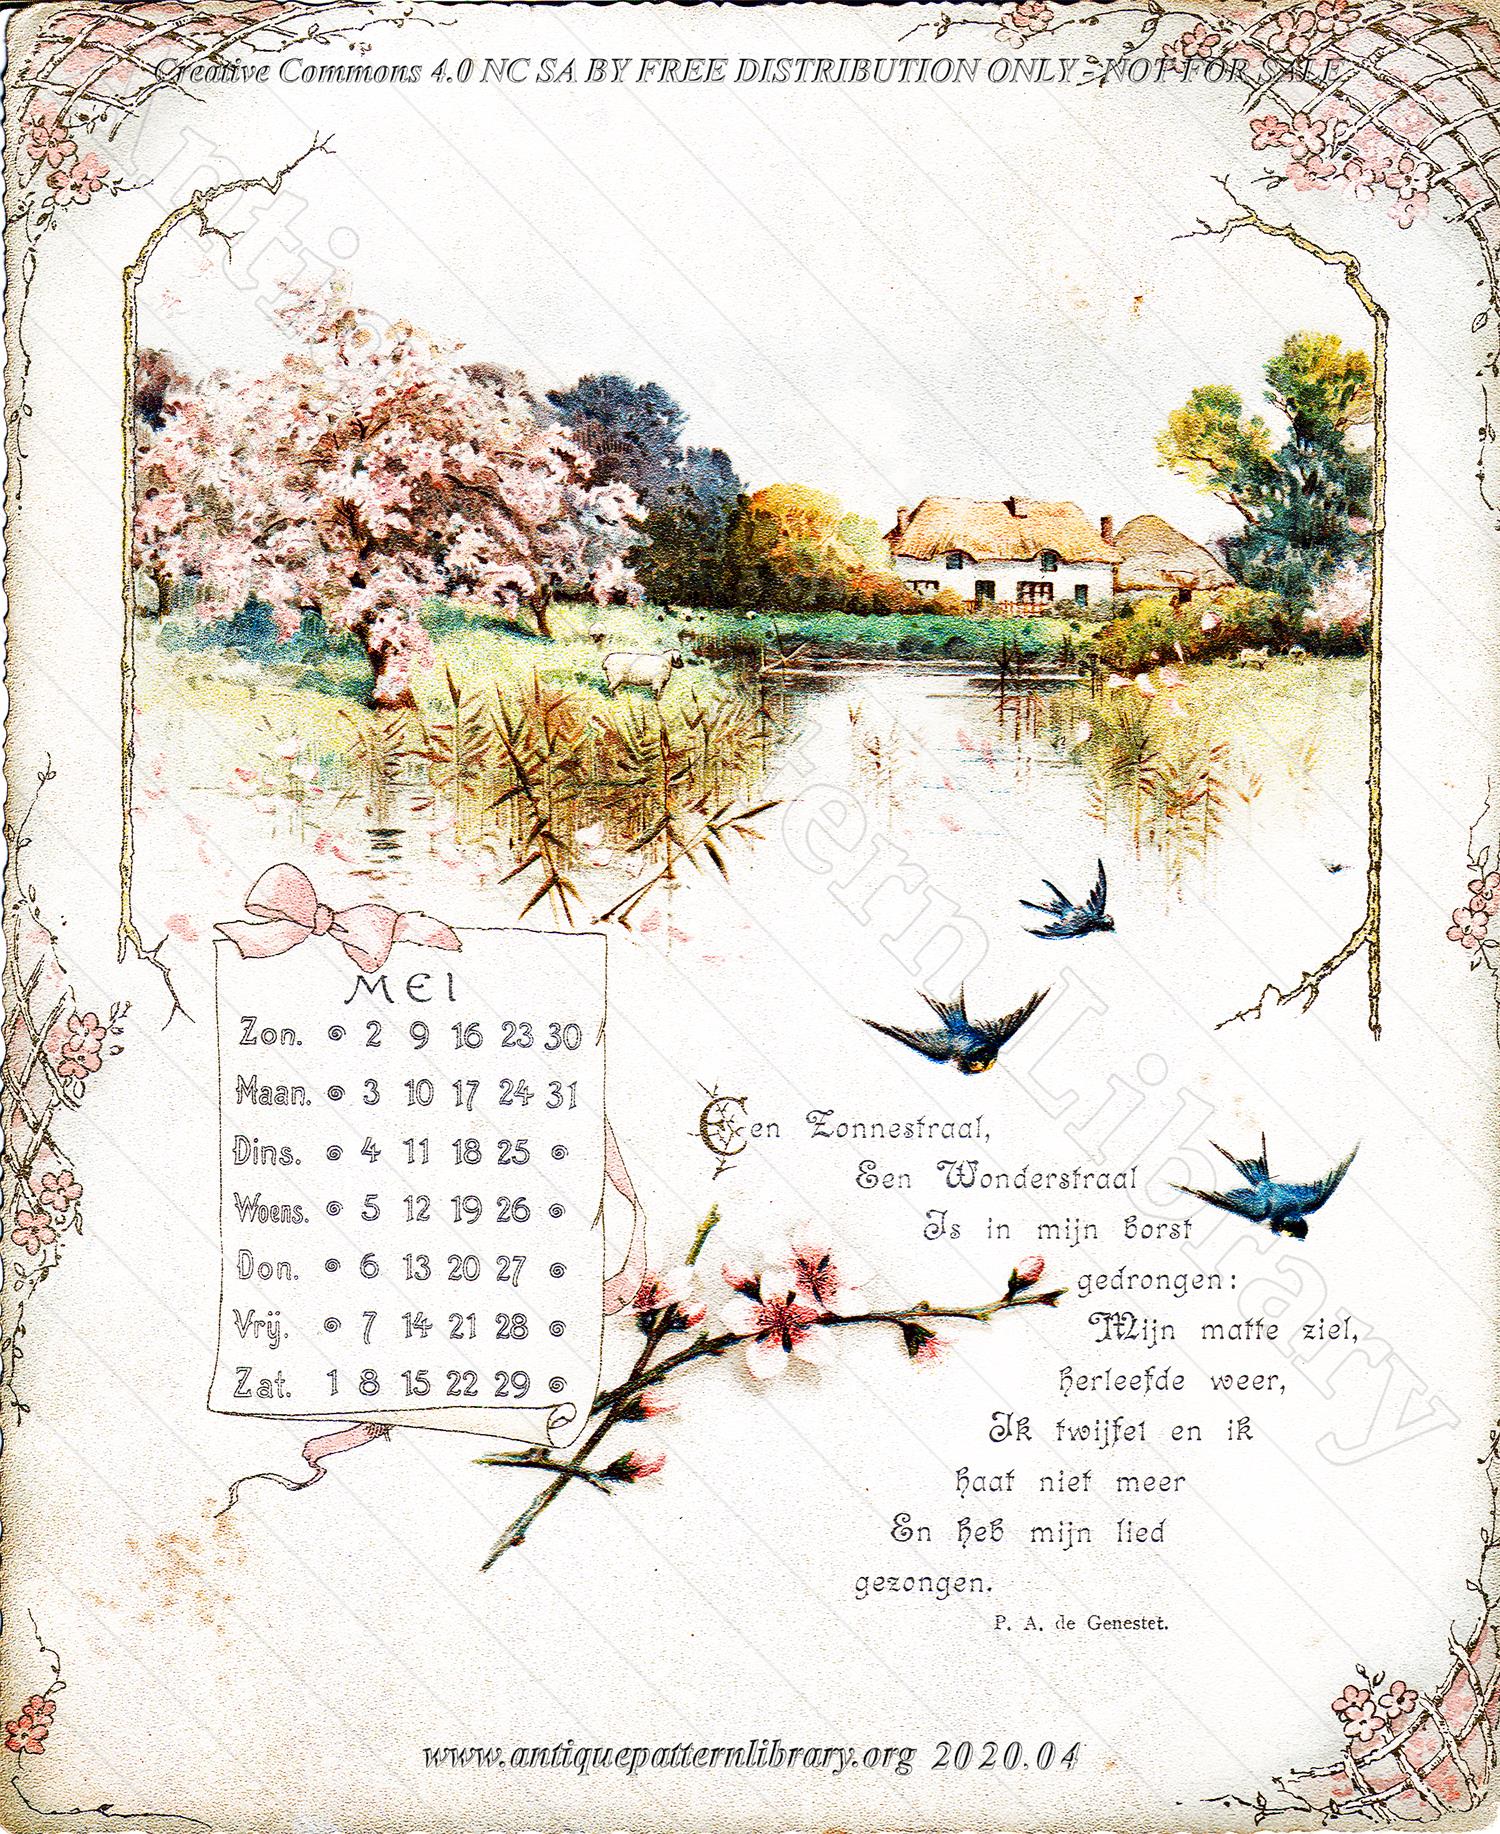 Creative Commons 4.0 NC SA BY FREE DISTRIBUTION ONLY - NOT FOR SALE
Antique Pattern Library
MEI
Zon. 2 9 16 23 30
Maan. 3 10 17 24 31
Dins. 4 11 18 25
Woens. 5 12 19 26
Don. 6 13 20 27
Vrij. 7 14 21 28
Zat. 1 8 15 22 29
Een Zonnestraal,
Een Wonderstraal
Is in mijn borst
gedrongen:
Mijn matte ziel,
herleefde weer,
Ik twijfel en ik
haat niet meer
En heb mijn lied
gezongen.
P. A. de Genestet.
www.antiquepatternlibrary.org 2020.04